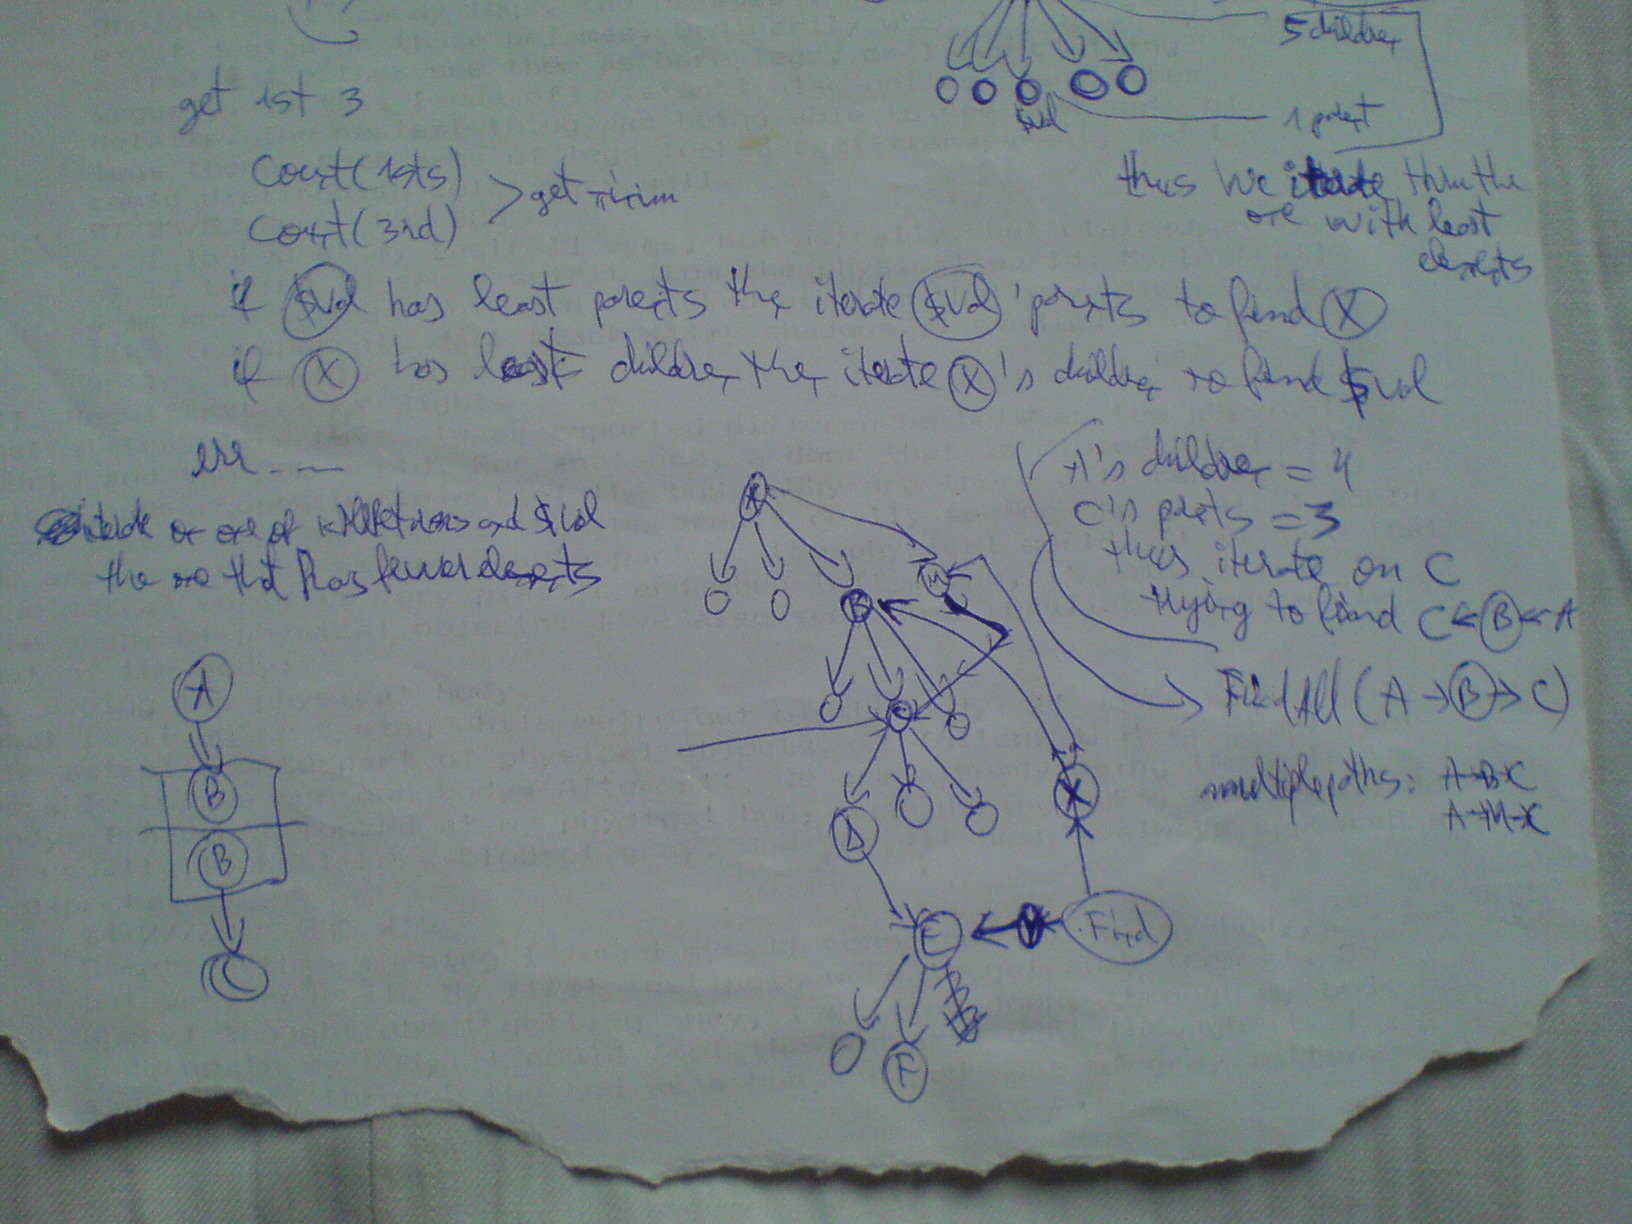 5 children
get 1st 3
$val
1 parent
Count(1sts)
Count(3rd)
> get minim
thus we iterate thru the
one with least
elements
if $val has least parents then iterate $val's parents to find X
if X has least children then iterate X's children to find $val
err.....
iterate on one of and $val
the one that has fewer elements
A's children = 4
C's parents = 3
thus iterate on C
trying to find C ← B ← A
Find All (A → B → C)
multiple paths: A→B→C
A→M→C
A
B
M
C
D
X
E
Y
Find
F
A
B
B
C